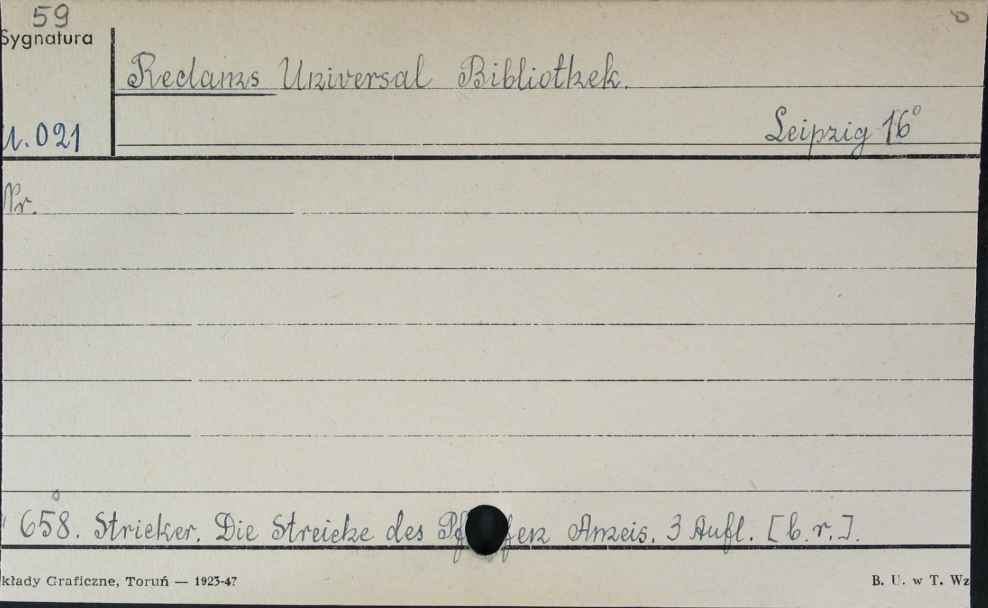 59
Sygnatura
Reclams Universal Bibliothek.
U.021
Leipzig 16°
Nr.
658. Stricker. Die Streiche des Ameis. 3 Aufl. [b.r.].
kłady Graficzne, Toruń — 1923-47
B. U. w T. Wz